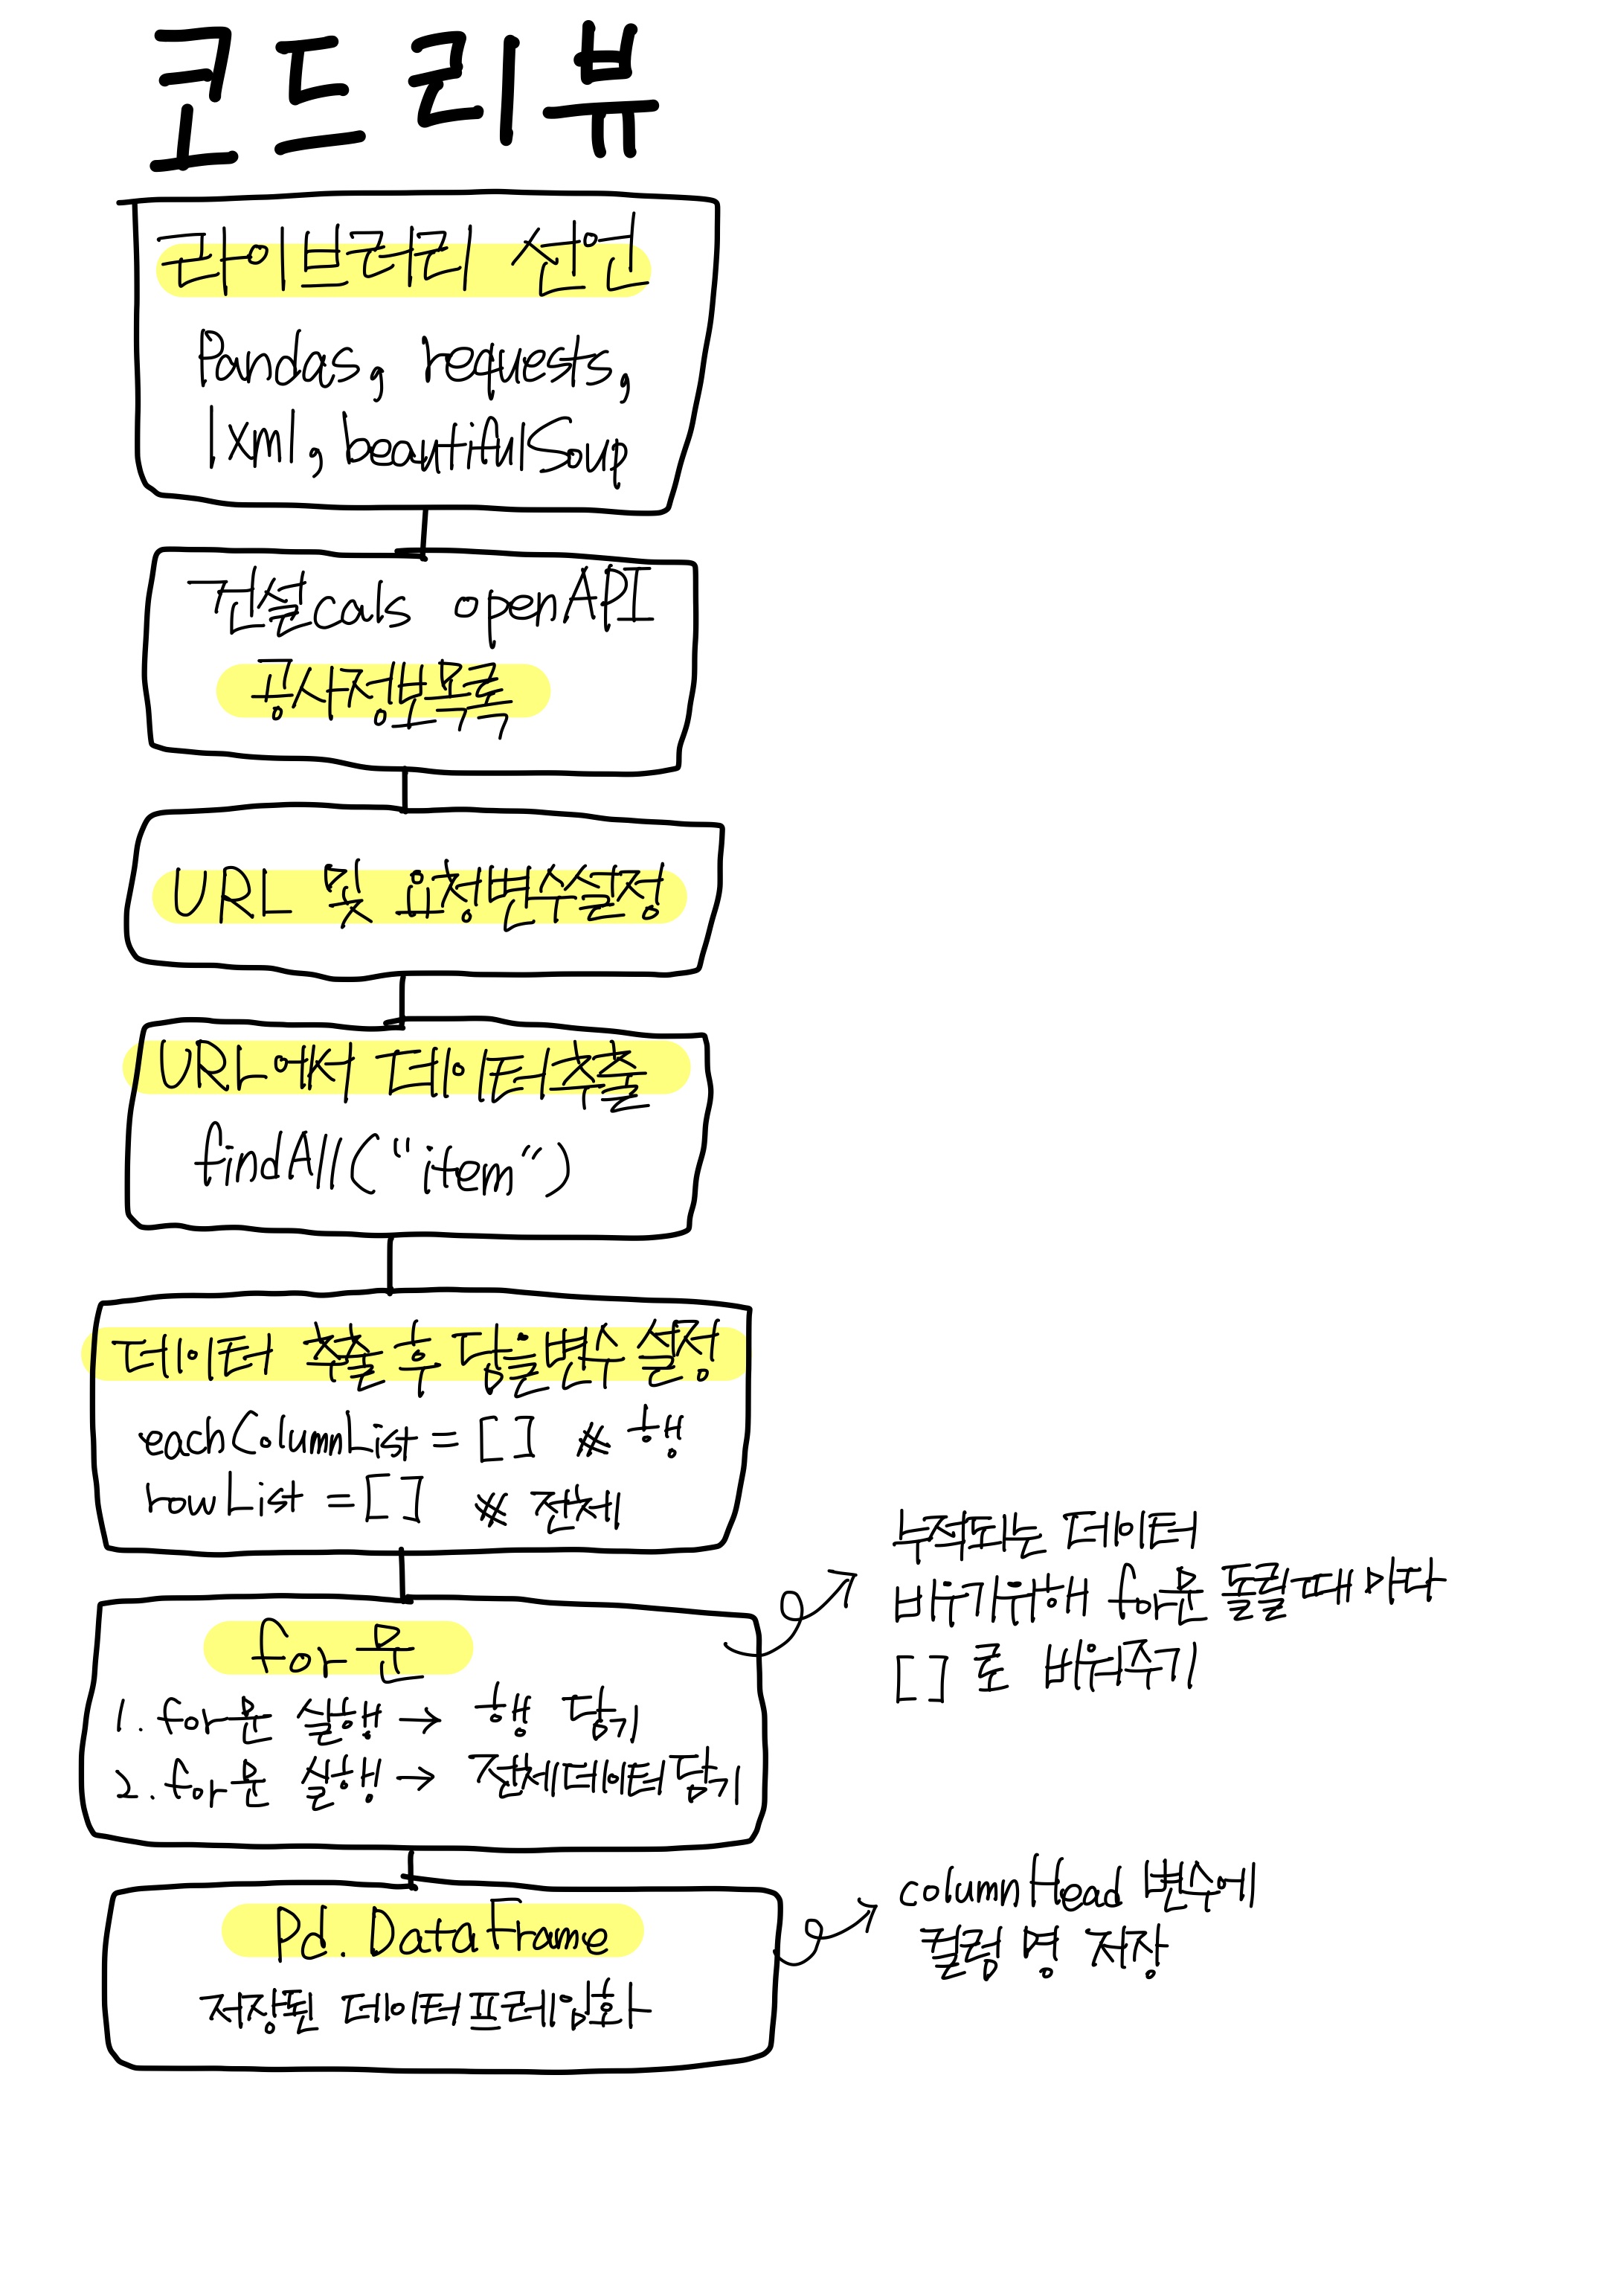 코드리뷰
라이브러리 선언
Pandas, requests,
lxml, beautifulSoup
건설cals openAPI
공사정보목록
URL 및 요청변수설정
URL에서 데이터추출
findAll("item")
데이터 추출 후 담을변수 설정
eachColumnList = [] # 행
rowList = [] # 전체
for 문
1. for문 실행 → 행 담기
2. for문 실행 → 전체데이터담기
누적되는 데이터
비우기위해 for문 돌릴때 마다
[] 로 비워주기
Pd. DataFrame
저장된 데이터프레임화
columnHead 변수에
컬럼 명 저장